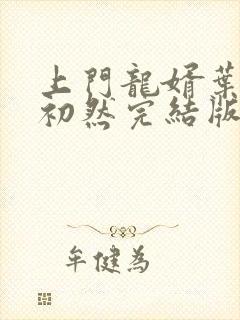 上門龍婿葉
初然完結版
牟健為